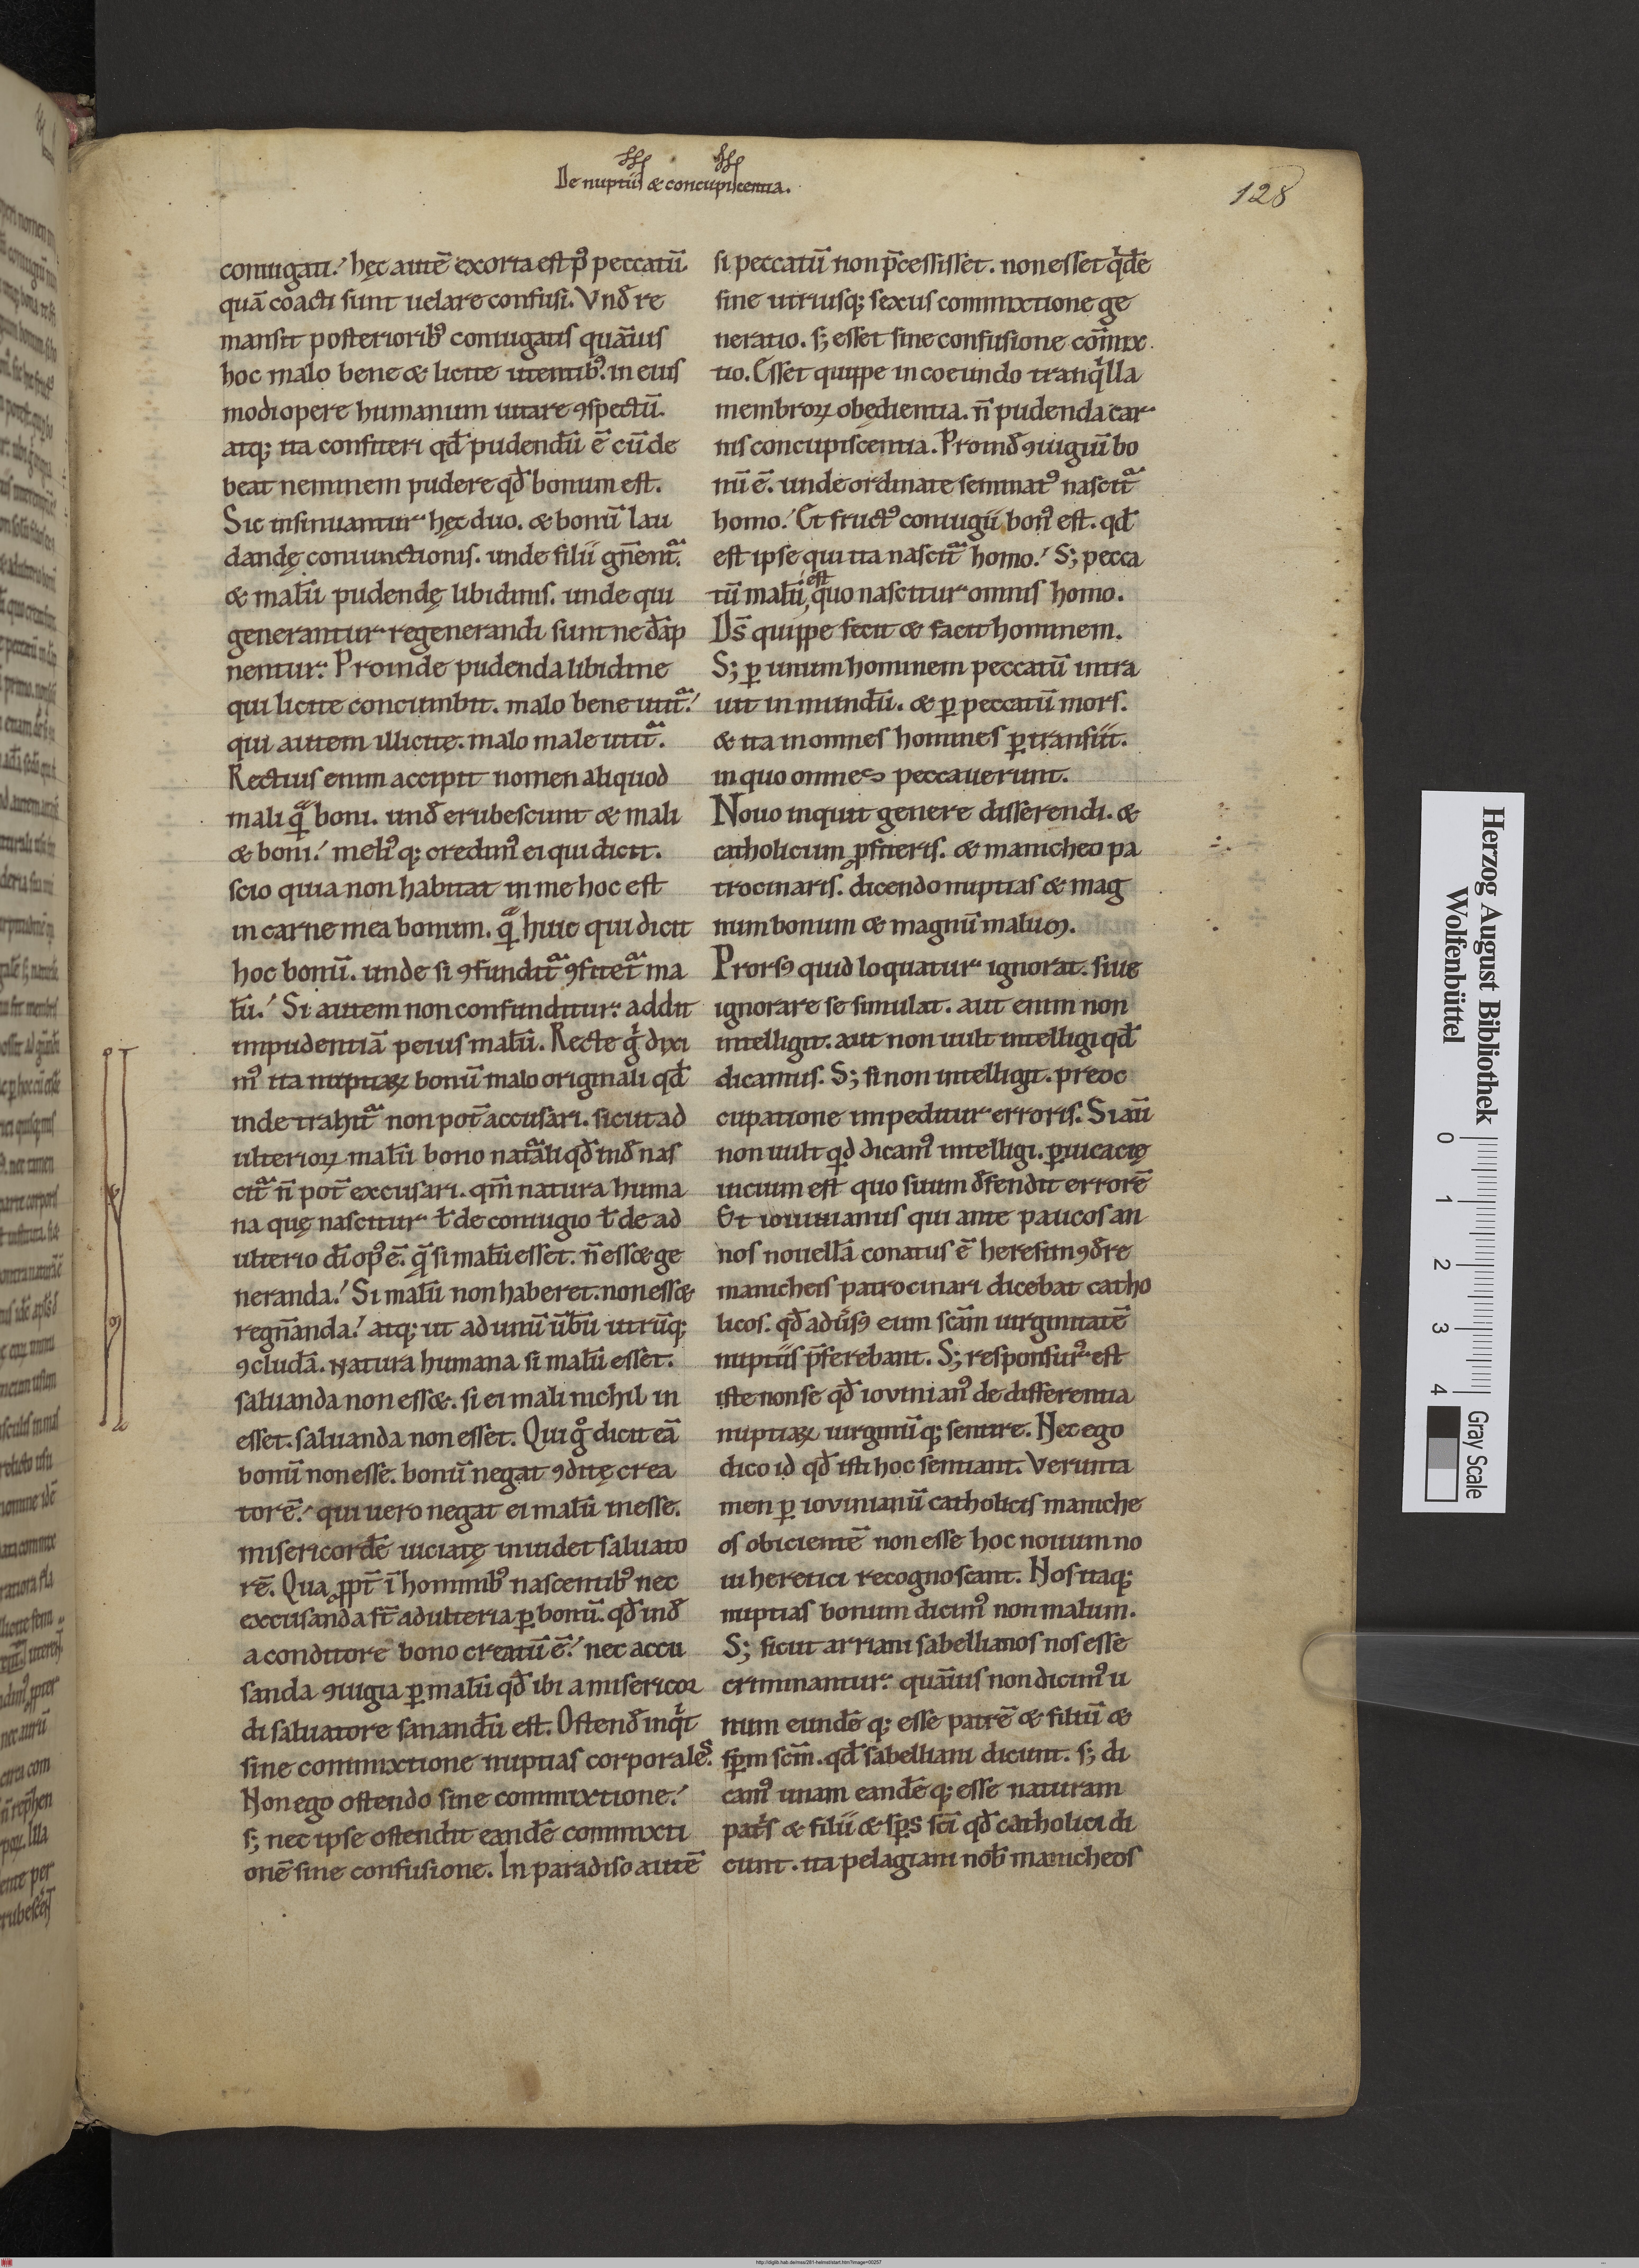 De nuptiis & concupiscentia.
128
coniugati.' hęc autē exorta est pꝰ peccatū
quā coacti sunt uelare confusi. Vnđ re
mansit posterioribꝰ coniugatis quāuis
hoc malo bene & licite utentibꝰ. in eius
modi opere humanum uitare ꝯspectū.
atq; ita confiteri qđ pudendū ē cū de
beat neminem pudere qđ bonum est.
Sic insinuantur hęc duo. & bonū lau
dandę coniunctionis. unde filii gn̄entᷓ.
& malū pudendę libidinis. unde qui
generantur regenerandi sunt ne dāp
nentur. Proinde pudenda libidine
qui licite concumbit. malo bene utitᷓ.'
qui autem illicite. malo male utitᷓ.
Rectius enim accipit nomen aliquod
mali qᷓ boni. unđ erubescunt & mali
& boni.' meliꝰq; credimꝰ ei qui dicit.
scio quia non habitat in me hoc est
in carne mea bonum. qᷓ huic qui dicit
hoc bonū. unde si ꝯfunditᷓ ꝯfitetᷓ ma
lū.' Si autem non confunditur: addit
impudentiā peius malū. Recte gͥ dixi
mꝰ ita nuptiaꝝ bonū malo originali qđ
inde trahitᷓ non pot̄ accusari. sicut ad
ulterioꝝ malū bono nat᷑ali qđ inđ nas
citᷓ n̄ pot̄ excusari. qm̄ natura huma
na quę nascitur ł de coniugio ł de ad
ulterio di opꝰ ē. qᷓ si malū esset. n̄ ess& ge
neranda.' Si malū non haberet. non ess&
regn̄anda.' atq; ut ad unū ūbū utrūq;
ꝯcludā. Natura humana si malū esset.
saluanda non ess&. si ei mali nichil in
esset. saluanda non esset. Qui gͦ dicit eā
bonū non esse. bonū negat ꝯditę crea
torē.' qui uero negat ei malū inesse.
misericordē uiciatę inuidet saluato
rē. Qua ꝓpt̄ ī hominibꝰ nascentibꝰ nec
excusanda st̄ adulteria ꝑ bonū. qđ inđ
a conditore bono creatū ē.' nec accu
sanda ꝯiugia ꝑ malū qđ ibi a misericor
di saluatore sanandū est. Ostenđ inqͥt
sine commixtione nuptias corporales.
Non ego ostendo sine commixtione.'
s; nec ipse ostendit eandē commixti
onē sine confusione. In paradiso autē
si peccatū non p̄cessisset. non esset qͥdē
sine utriusq; sexus commixtione ge
neratio. s; esset sine confusione com̄ix
tio. Esset quippe in coeundo tranqͥlla
membroꝝ obędientia. n̄ pudenda car
nis concupiscentia. Proinđ ꝯiugiū bo
nū ē. unde ordinate seminatꝰ nascitᷓ
homo.' Et fructꝰ coniugii bonꝰ est. qđ
est ipse qui ita nascitᷓ homo.' S; pecca
tū malū est quo nascitur omnis homo.
Ds̄ quippe fecit & facit hominem.
S; ꝑ unum hominem peccatū intra
uit in mundū. & ꝑ peccatū mors.
& ita in omnes homines ꝑtransiit.
in quo omnes peccauerunt.
Nouo inquit genere disserendi. &
catholicum ꝓfiteris. & manicheo pa
trocinaris. dicendo nuptias & mag
num bonum & magnū malum.
Prorsꝰ quid loquatur ignorat. siue
ignorare se simulat. aut enim non
intelligit. aut non uult intelligi qđ
dicamus. S; si non intelligit. preoc
cupatione impeditur erroris. Si aū
non uult qđ dicamꝰ intelligi. ꝑuicacię
uicium est quo suum đfendit errorē
Et iouinianus qui ante paucos an
nos nouellā conatus ē heresim ꝯđre
manicheis patrocinari dicebat catho
licos. qđ aduͥsꝰ eum scām uirginitatē
nuptiis p̄ferebant. S; responsurꝰ est
iste non se qđ iovinianꝰ de differentia
nuptiaꝝ uirginūq; sentire. Nec ego
dico id qđ isti hoc sentiant. Verunta
men ꝑ iovinianū catholicis maniche
os obicientē non esse hoc nouum no
ui heretici recognoscant. Nos itaq;
nuptias bonum dicimꝰ non malum.
S; sicut arriani sabellianos nos esse
criminantur. quāuis non dicimꝰ u
num eundē q; esse patrē & filiū &
sp̄m scm̄. qđ sabelliani dicunt. s; di
camꝰ unam eandē q; esse naturam
patͥs & filii & sp̄s sc̄i qđ catholici di
cunt. ita pelagiani nob̄ manicheos
Herzog August Bibliothek
Wolfenbüttel
0 1 2 3 4
Gray Scale
http://diglib.hab.de/mss/281-helmst/start.htm?image=00257